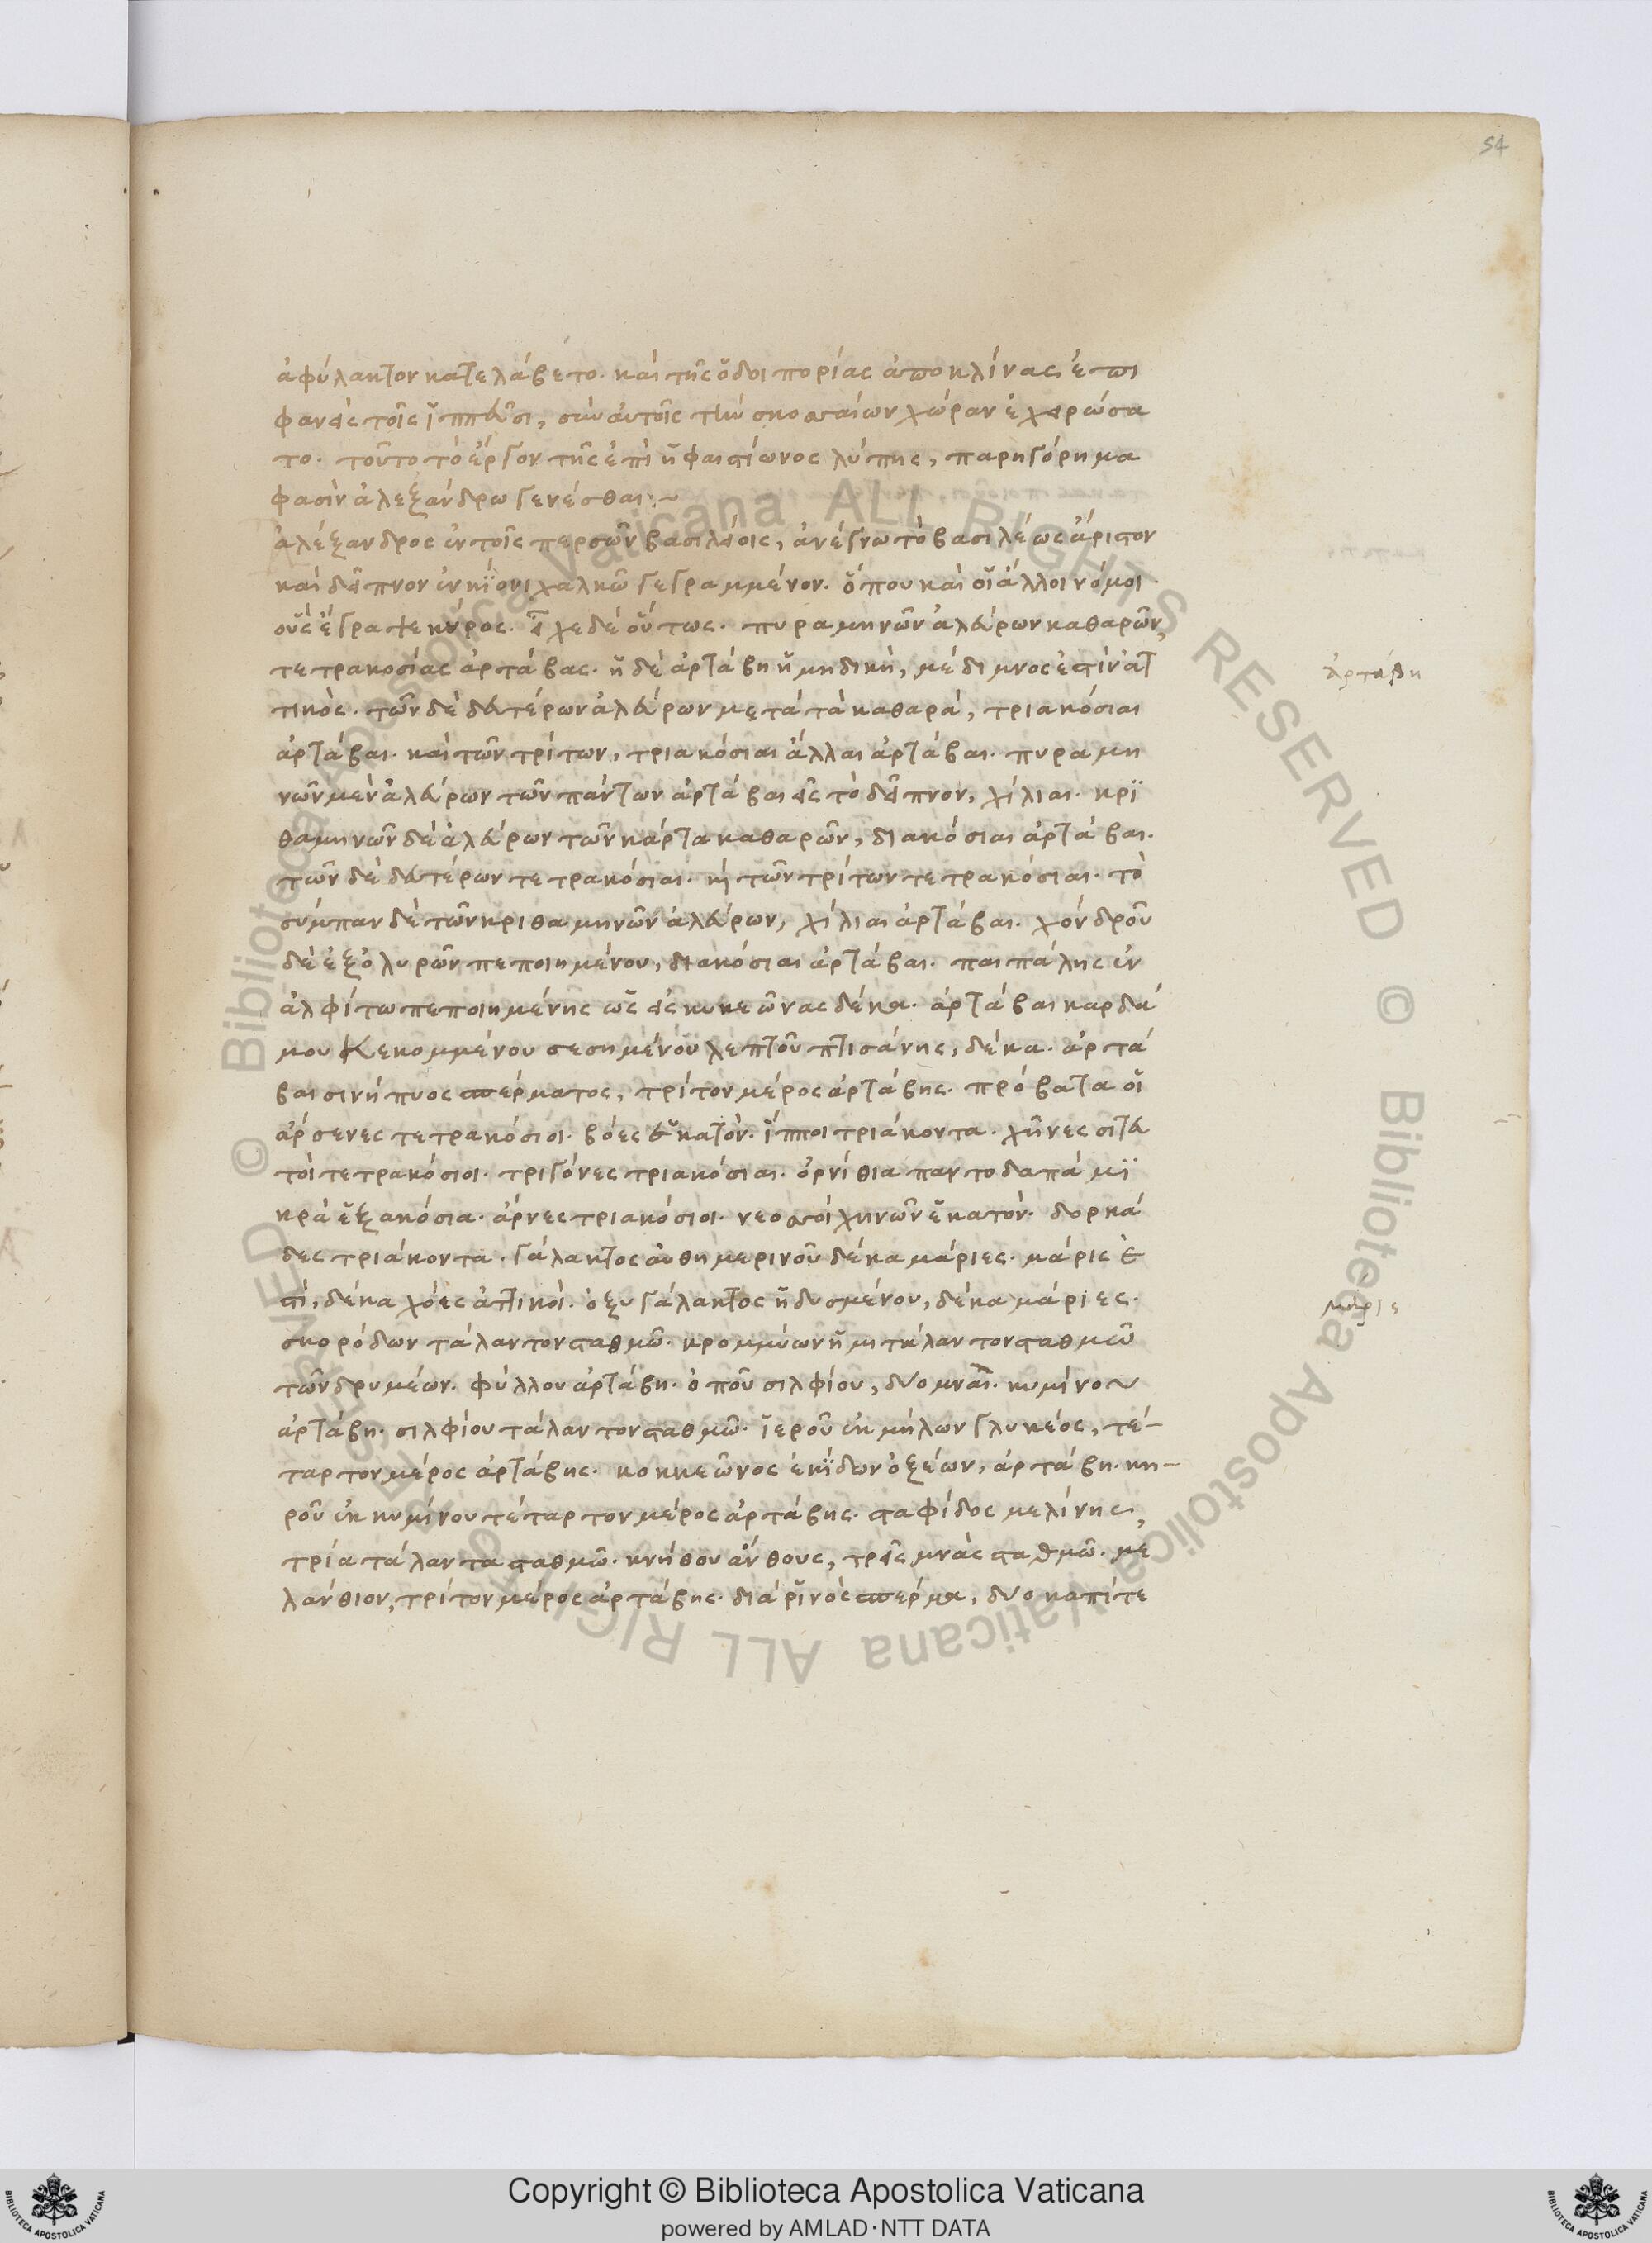 54
ἀφύλακτον κατελάβετο. καὶ τῆς ὁδοιπορίας ἀποκλίνας, ἐπι
φανεὶς τοῖς ἱππεῦσι, σὺν αὐτοῖς τὴν κοσσαίων χώραν ἐχειρώσα
το. τοῦτο τὸ ἔργον τῆς ἐπὶ ἡφαιστίωνος λύπης, παρηγόρημα
φασὶν ἀλεξάνδρω γενέσθαι:~
ἀλέξανδρος ἐν τοῖς περσῶν βασιλείοις, ἀνέγνω τὸ βασιλέως ἄριστον
καὶ δεῖπνον ἐν κΐονι χαλκῶ γεγραμμένον. ὅπου καὶ οἱ ἄλλοι νόμοι
οὓς ἔγραψε κύρος. εἶχε δὲ οὕτως. πυραμηνῶν ἀλεύρων καθαρῶν,
τετρακοσίας ἀρτάβας. ἡ δὲ ἀρτάβη ἡ μηδικὴ, μέδιμνος ἐστὶν ἀτ
τικός. τῶν δὲ δευτέρων ἀλεύρων μετὰ τὰ καθαρά, τριακόσιαι
ἀρτάβαι. καὶ τῶν τρίτων, τριακόσιαι ἄλλαι ἀρτάβαι. πυραμη
νῶν μὲν ἀλεύρων τῶν πάντων ἀρτάβαι εἰς τὸ δεῖπνον, χίλιαι. κρϊ
θαμηνῶν δὲ ἀλεύρων τῶν κάρτα καθαρῶν, διακόσιαι ἀρτάβαι.
τῶν δὲ δευτέρων τετρακόσιαι. καὶ τῶν τρίτων τετρακόσιαι. τὸ
σύμπαν δὲ τῶν κριθαμηνῶν ἀλεύρων, χίλιαι ἀρτάβαι. χόνδρου
δὲ ἐξ ὀλυρῶν πεποιημένου, διακόσιαι ἀρτάβαι. παιπάλης ἐν
ἀλφίτω πεποιημένης ὡς εἰς κυκεῶνας δέκα. ἀρτάβαι καρδά
μου κεκομμένου σεσημένου λεπτοῦ πτισάνης, δέκα. ἀρτά
βαι σινήπυος σπέρματος, τρίτον μέρος ἀρτάβης. πρόβατα οἱ
ἄρσενες τετρακόσιοι. βόες ἑκατόν. ἵπποι τριάκοντα. χῆνες σιτευ
τοὶ τετρακόσιοι. τριγόνες τριακόσιαι. ὀρνίθια παντοδαπὰ μϊ
κρὰ ἑξακόσια. ἄρνες τριακόσιοι. νεοσσοὶ χηνῶν ἑκατόν. δορκά
δες τριάκοντα. γάλακτος αὐθημερινοῦ δέκα μάριες. μάρις ἐ
στὶ, δέκα χόες ἀττικοὶ. ὀξυγάλακτος ἡδυσμένου, δέκα μάριες.
σκορόδων τάλαντον σταθμῶ. κρομμύων ἡμιτάλαντον σταθμῶ
τῶν δρυμέων. φύλλου ἀρτάβη. ὀποῦ σιλφίου, δύο μναῖ. κυμίνου
ἀρτάβη. σιλφίου τάλαντον σταθμῶ. ἱεροῦ ἐκ μήλων γλυκέος, τέ–
ταρτον μέρος ἀρτάβης. κοκκεῶνος ἐκΐδων ὀξέων, ἀρτάβη. κη–
ροῦ ἐκ κυμίνου τέταρτον μέρος ἀρτάβης. σταφίδος μελίνης,
τρία τάλαντα σταθμῶ. κνήθου ἄνθους, τρεῖς μνᾶς σταθμῶ. με
λάνθιον, τρίτον μέρος ἀρτάβης. διάρινὸς σπέρμα, δύο καπίτε
ἀρτάβη
μάρις
Copyright © Biblioteca Apostolica Vaticana
powered by AMLAD·NTT DATA
© Biblioteca Apostolica Vaticana ALL RIGHTS RESERVED